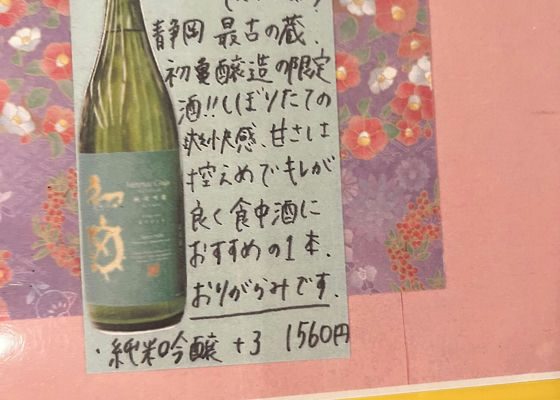 静岡 最古の蔵、
初亀醸造の限定
酒!!しぼりたての
爽快感、甘さは
控えめでキレが
良く食中酒に
おすすめの1本、
おりがらみです、
・純米吟醸 +3 1560円
初亀